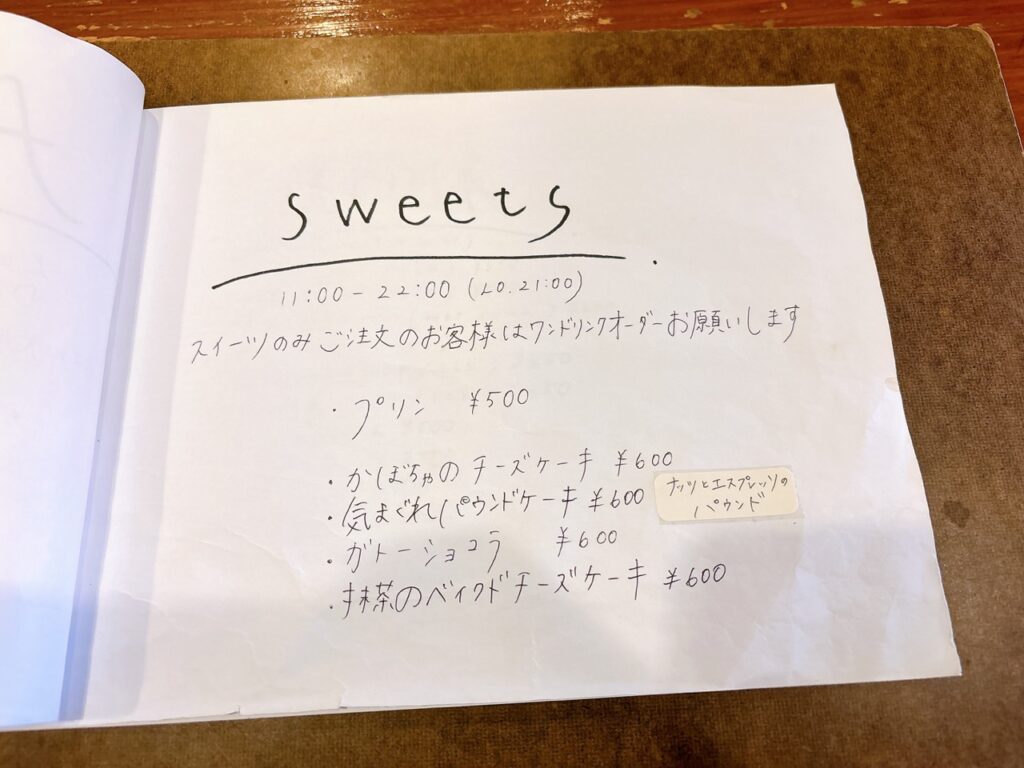 sweets
11:00 - 22:00 (LO. 21:00)
スイーツのみご注文のお客様はワンドリンクオーダーお願いします
・プリン ¥500
・かぼちゃのチーズケーキ ¥600
・気まぐれパウンドケーキ ¥600
ナッツとエスプレッソの
パウンド
・ガトーショコラ ¥600
・抹茶のベイクドチーズケーキ ¥600